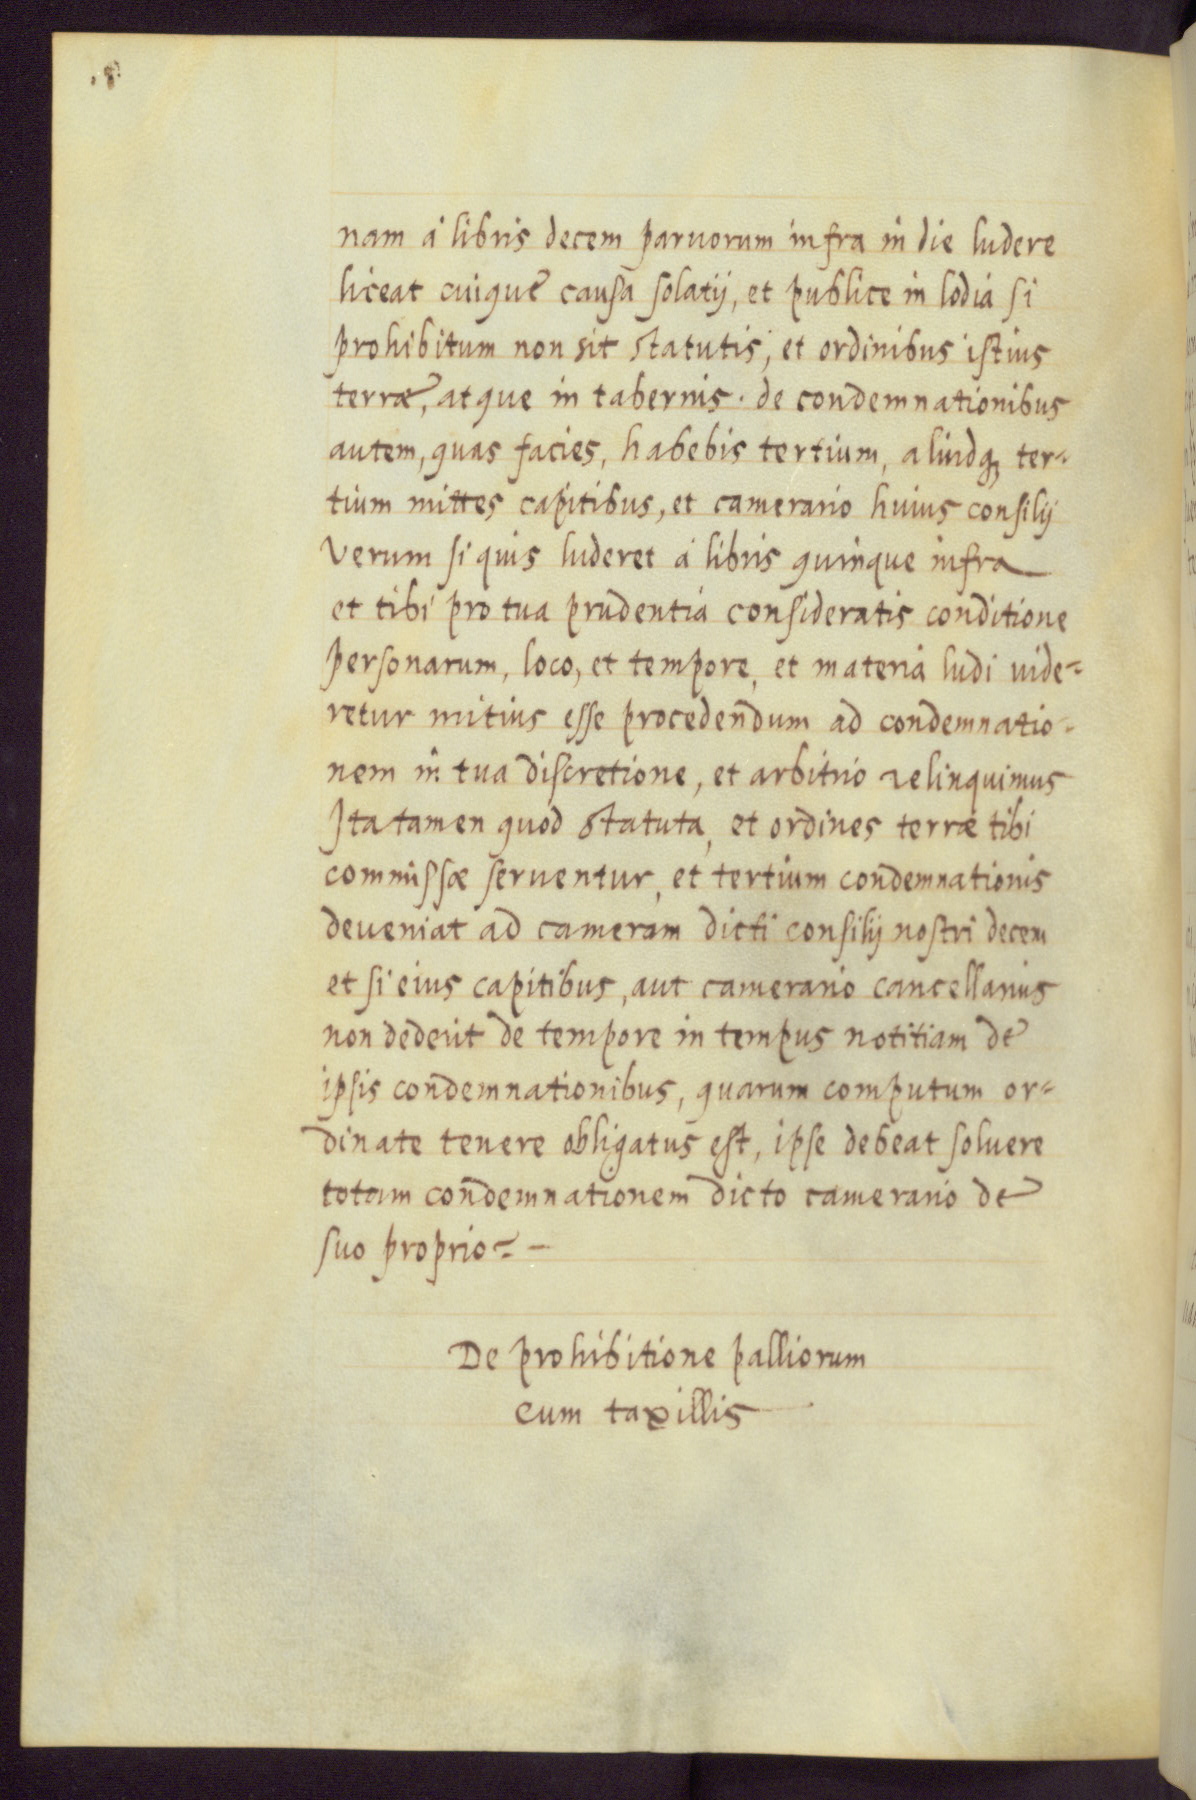 nam à libris decem paruorum infra in die ludere
liceat cuique causa solatij, et publice in lodia si
prohibitum non sit statutis, et ordinibus istius
terræ, atque in tabernis. de condemnationibus
autem, quas facies, habebis tertium, aliudq; ter=
tium mittes capitibus, et camerario huius consilij
Verum si quis luderet à libris quinque infra
et tibi pro tua prudentia consideratis conditione
personarum, loco, et tempore, et materia ludi uide=
retur mitius esse procedendum ad condemnatio-
nem in tua discretione, et arbitrio relinquimus
Ita tamen quod statuta, et ordines terræ tibi
commissæ seruentur, et tertium condemnationis
deueniat ad cameram dicti consilij nostri decem
et si eius capitibus, aut camerario cancellarius
non dederit de tempore in tempus notitiam de
ipsis condemnationibus, quarum computum or=
dinate tenere obligatus est, ipse debeat soluere
totam condemnationem dicto camerario de
suo proprio = -
De prohibitione palliorum
cum taxillis